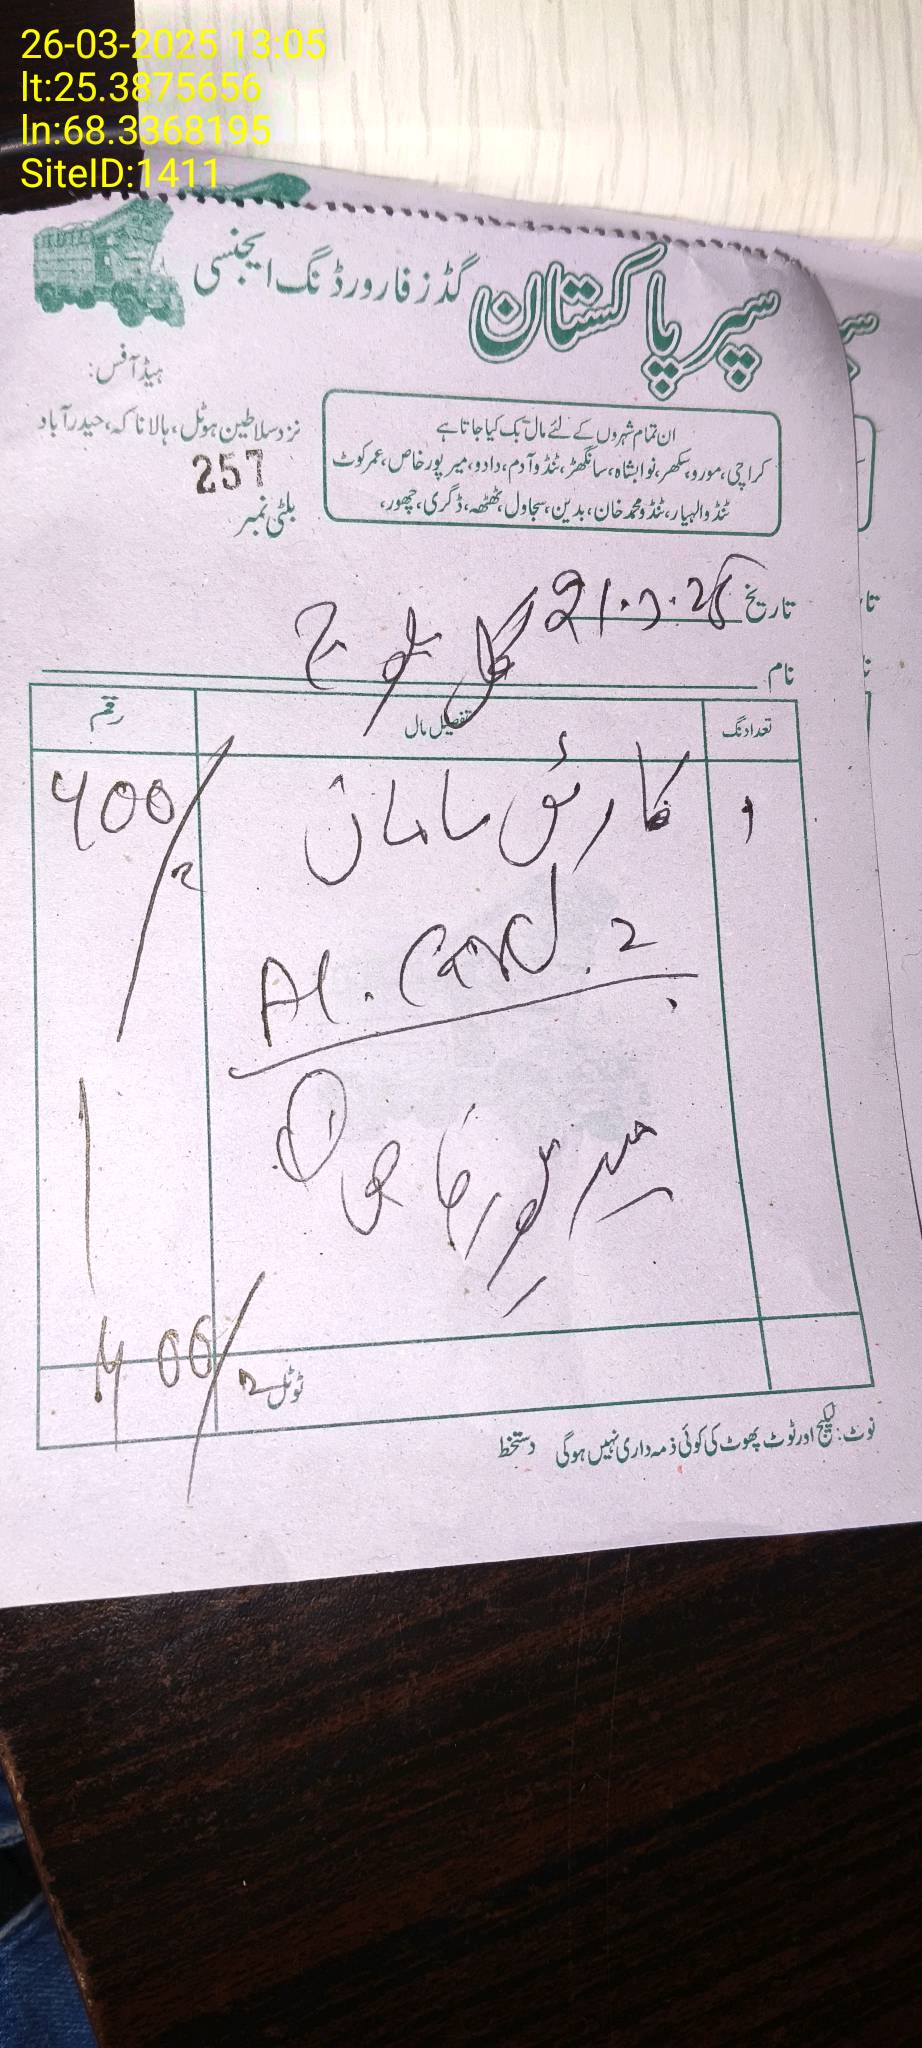 26-03-2025 13:05
lt:25.3875656
ln:68.3368195
SiteID:1411
سپر پاکستان گڈز فارورڈنگ ایجنسی
ہیڈ آفس:
نزد سلاطین ہوٹل، ہالا ناکہ، حیدرآباد
ان تمام شہروں کے لئے مال بک کیا جاتا ہے
کراچی، مورو، سکھر، نوابشاہ، سانگھڑ، ٹنڈو آدم، دادو، میرپور خاص، عمرکوٹ
ٹنڈوالہیار، ٹنڈو محمد خان، بدین، سجاول، ٹھٹھہ، ڈگری، چھور،
257
بلٹی نمبر
تاریخ 21.3.25
نام گل بلوچ
تعداد نگ تفصیل مال رقم
1 سامان 400/
Card. 2
میرپورخاص
ٹوٹل 400/
نوٹ: لیکیج اور ٹوٹ پھوٹ کی کوئی ذمہ داری نہیں ہوگی دستخط